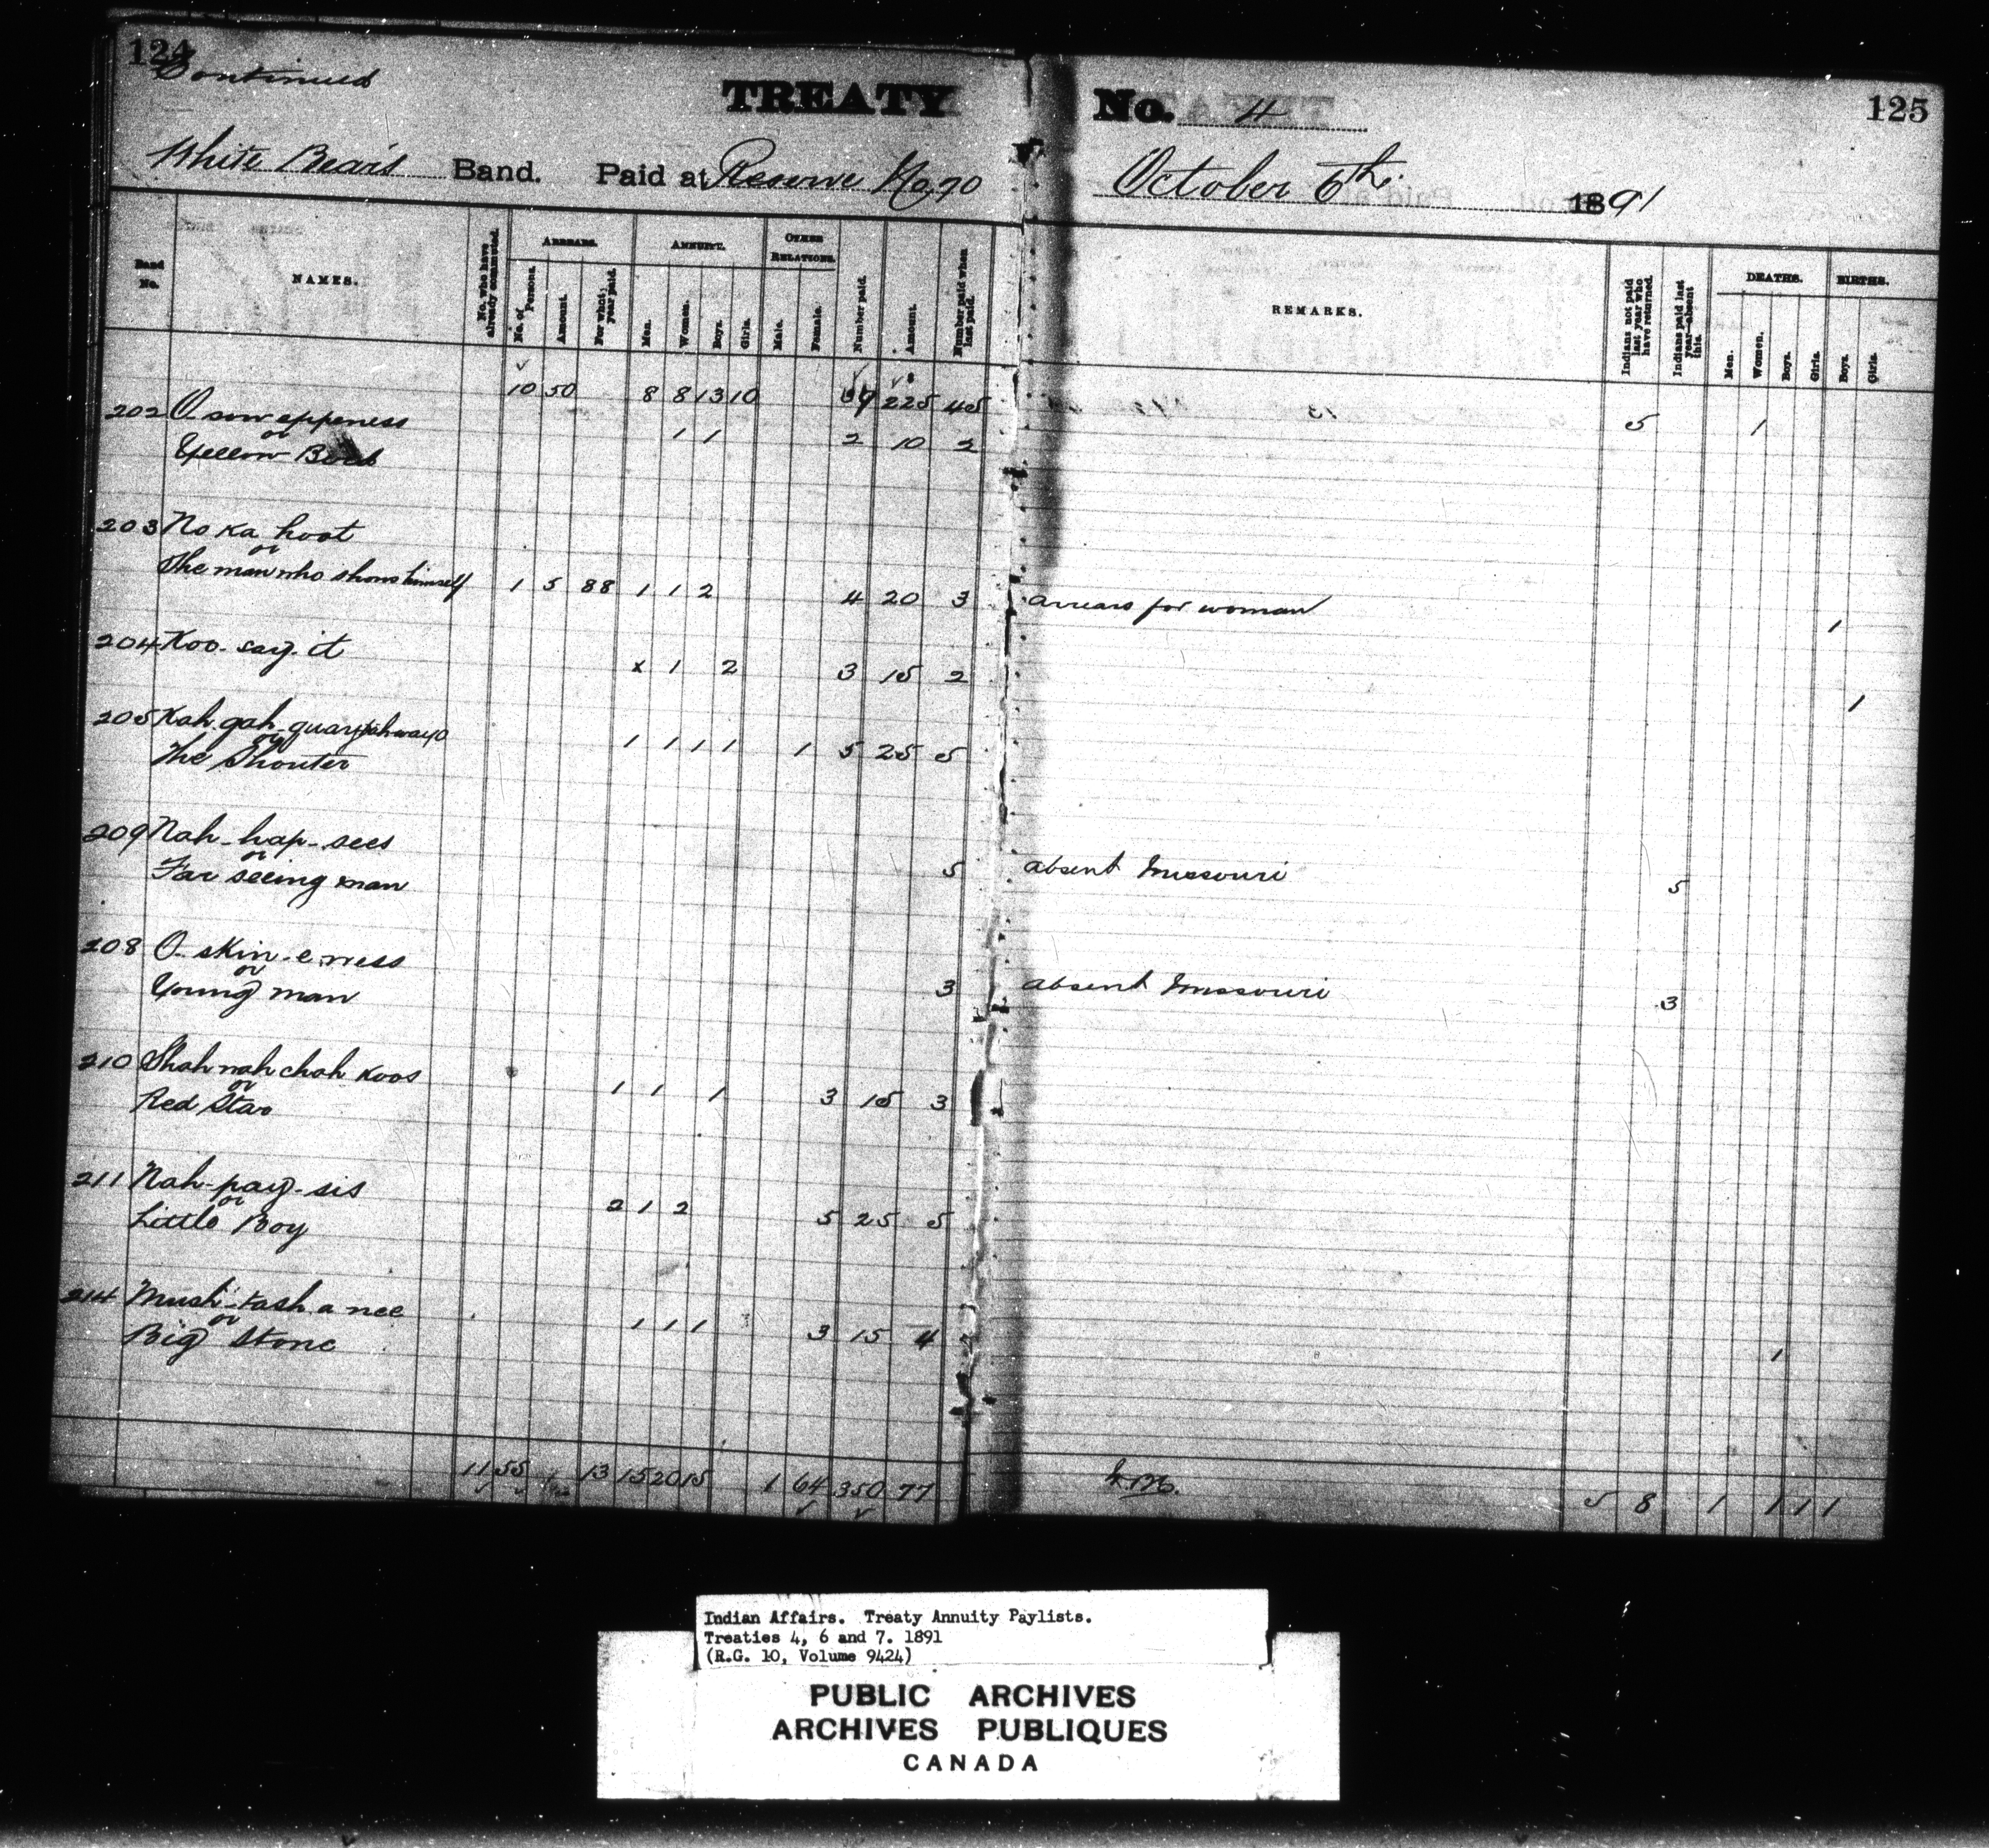 124 Continued
TREATY No. 4 125
White Bear's Band. Paid at Reserve No 70 October 6th. 1891
Band No. NAMES. No. who have already commuted. ARREARS. ANNUITY. OTHER RELATIONS. Number paid. Amount. Number paid when last paid. REMARKS. Indians not paid last year who have returned. Indians paid last year—absent this. DEATHS. BIRTHS.
No. of Persons. Amount. For what year paid. Men. Women. Boys. Girls. Male. Female. Men. Women. Boys. Girls. Boys. Girls.
10 50 8 8 13 10 225 45 5 1
202 O sow eppeness
or 1 1 2 10 2
Yellow
203 No ka hoot
or
The man who shows himself 1 5 88 1 1 2 4 20 3 arrears for woman 1
204 Koo-say-it x 1 2 3 15 2 1
205 Kah gah
or 1 1 1 1 1 5 25 5
The Shouter
209 Nah-hap-sees
or
Far seeing man 5 absent Missouri 5
208 O-skin-e-ness
or
Young man 3 absent Missouri 3
210 Shah nah chah koos
or 1 1 1 3 15 3
Red Star
211 Nah-pay-sis
or 2 1 2 5 25 5
Little Boy
214 Mush-tash a nee
or 1 1 1 3 15 4
Big Stone 1
11 55 13 15 20 15 1 64 350 77 5 8 1 1 1 1
Indian Affairs. Treaty Annuity Paylists.
Treaties 4, 6 and 7. 1891
(R.G. 10, Volume 9424)
PUBLIC ARCHIVES
ARCHIVES PUBLIQUES
CANADA